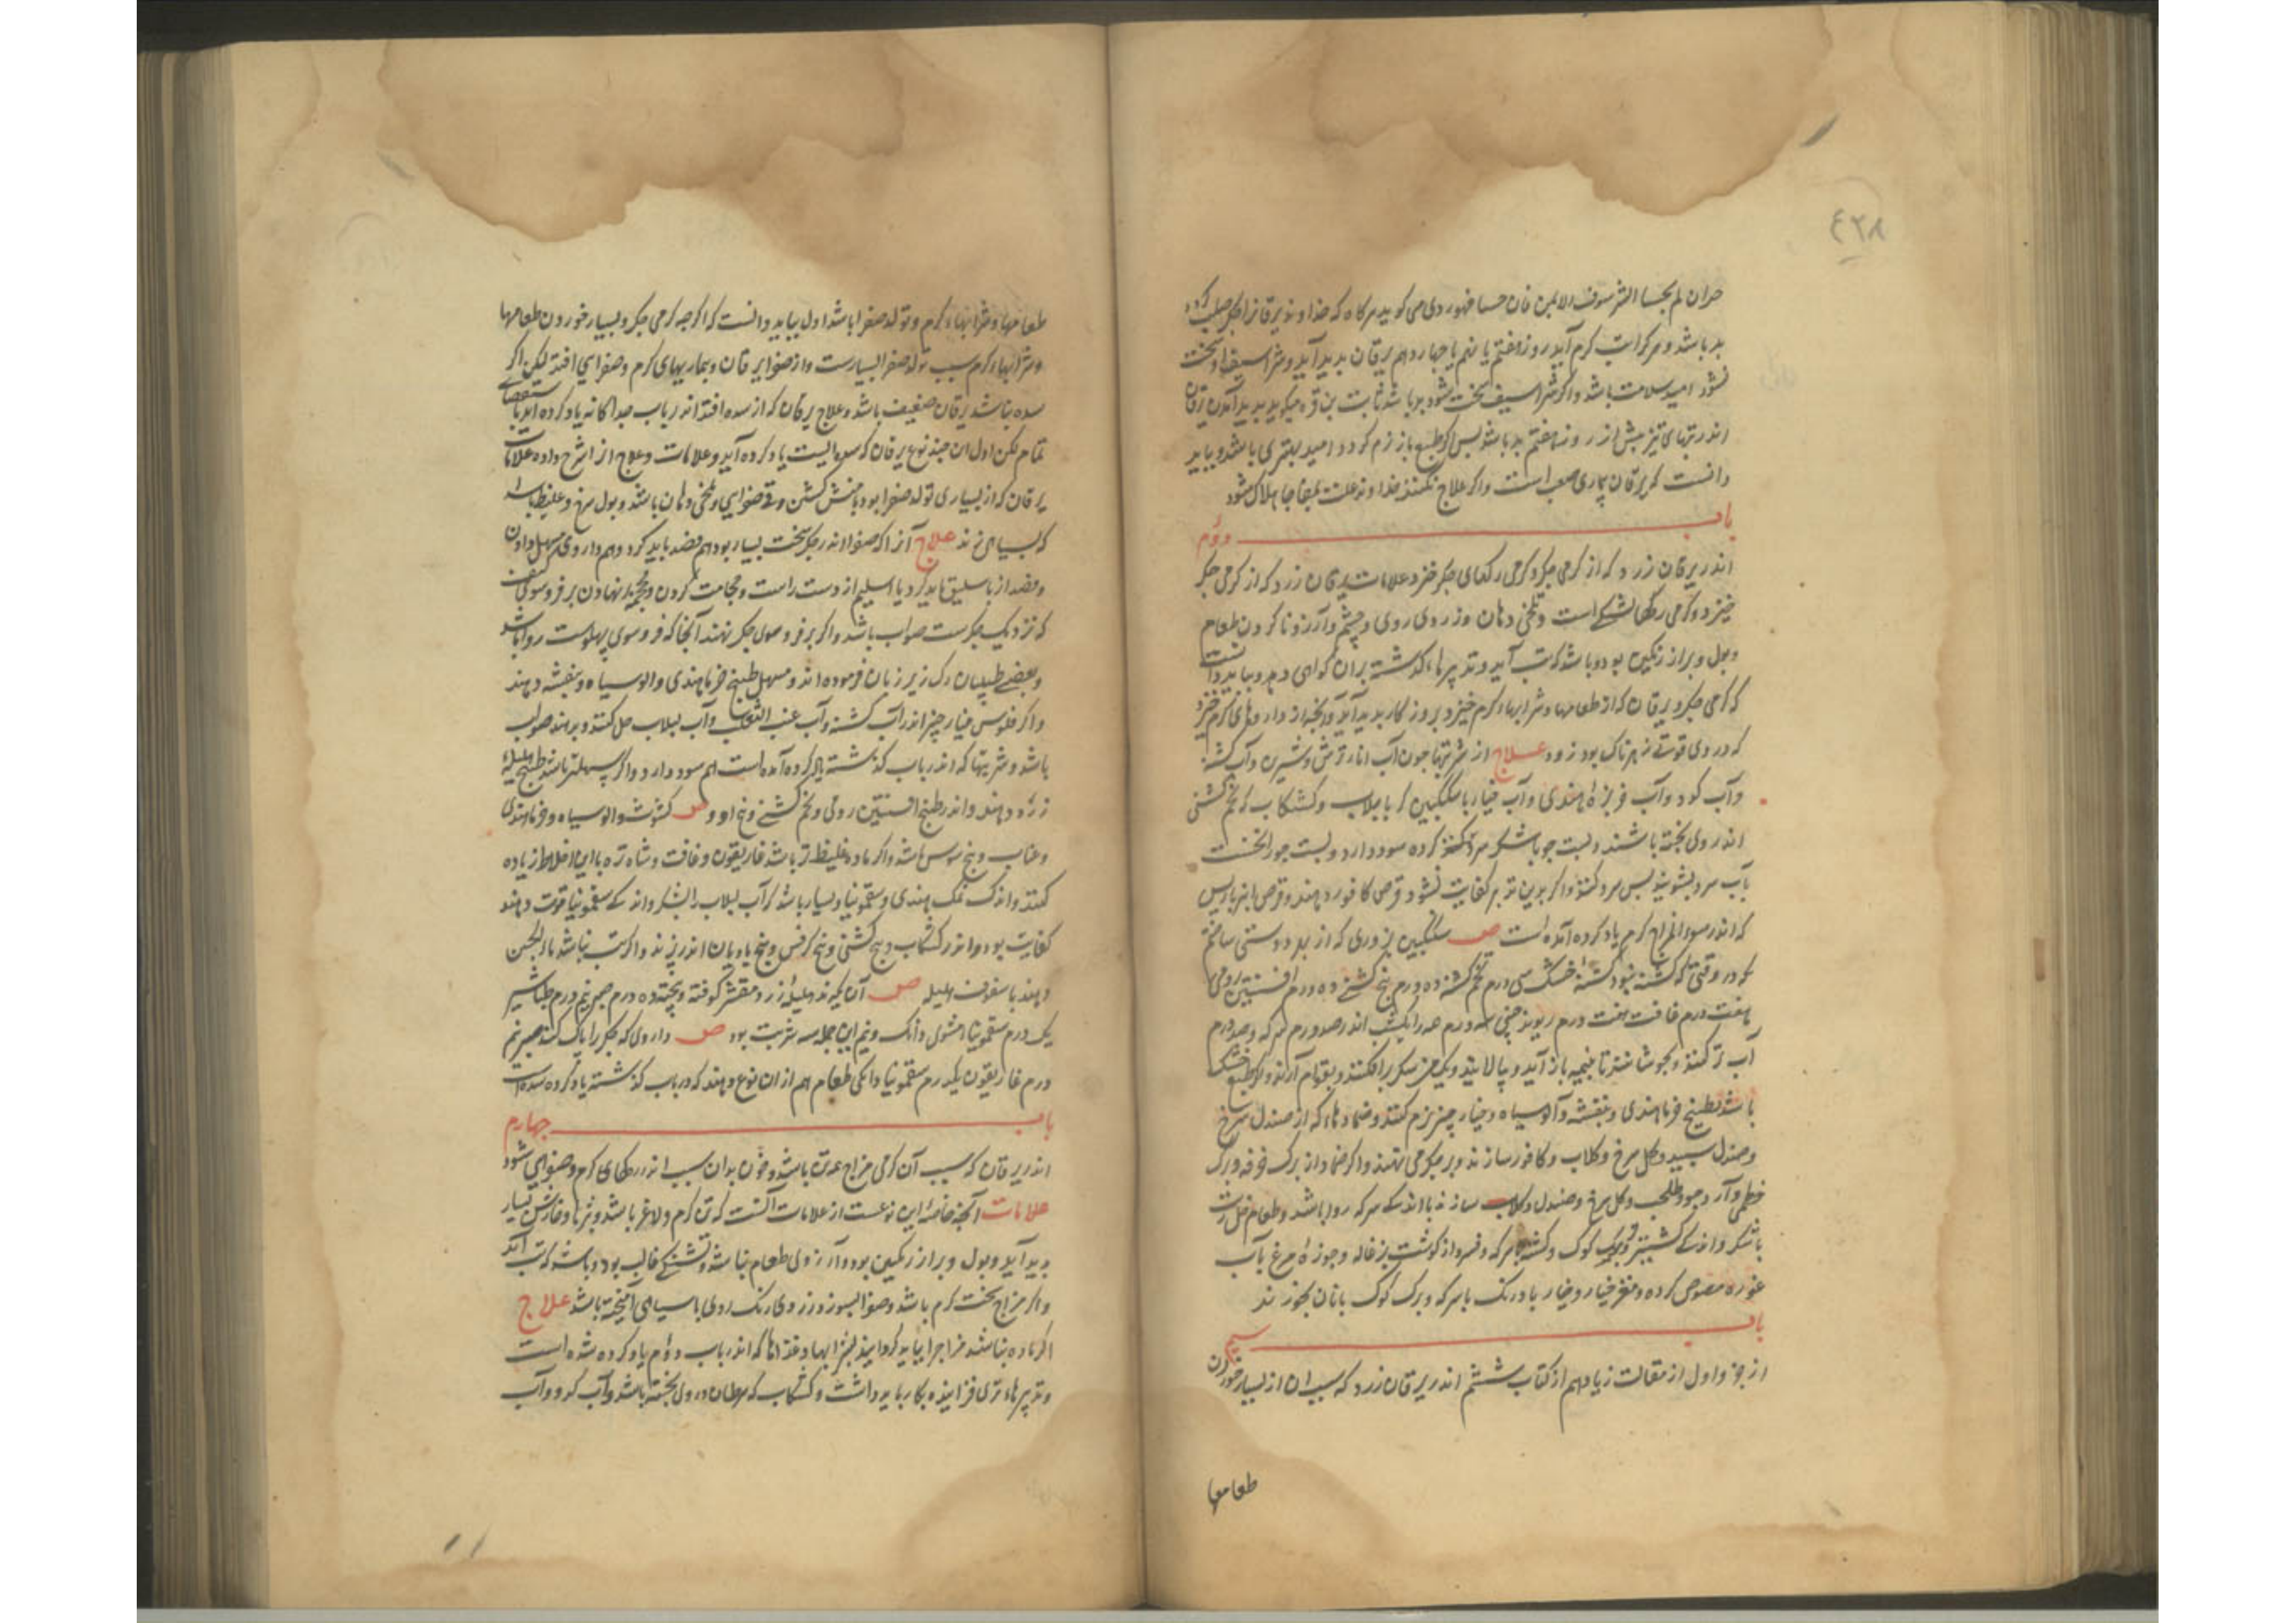 ٤٢٨
حران لم بجسا الشرسوف الایمن فان جسا فهو ردی می کوید هرکاه که خداوند یرقانرا جکر صلب کردد
بد باشد و هرکرا تب کرم آید روز هفتم یا نهم یا چهاردهم یرقان بدید آید و شراسیف او سخت
نشود امید سلامت باشد و اکر شراسیف سخت شود بد باشد ثابت بن قره میکوید بدید آمدن یرقان
اندر تبهای تیز پیش از روز هفتم بد باشد پس اکر طبع باز نرم کردد امید بهتری باشد و بباید
دانست که یرقان بیماری صعب است و اکر علاج نکنند خداوند علت بمفاجا هلاک شود
باب دوم
اندر یرقان زرد که از کرمی جکر و کرمی رکهای جکر خیزد علامات یرقان زرد که از کرمی جکر
خیزد و کرمی رکها تشنکی است و تلخی دهان و زردی روی و چشم و آرزو ناکردن طعام
و بول و براز رنکین بود و باشد که تب آید و تدبیرهاء کذشته بران کواهی دهد و بباید دانست
که کرمی جکر و یرقان که از طعامها و شرابهاء کرم خیزد بروزکار بدید آید و آنچه از داروهای کرم خیزد
که در وی قوتی زهرناک بود زود علاج از شربتها چون آب انار ترش و شیرین و آب کشنه
و آب کدو و آب خربزهٔ هندی و آب خیار با سکنکبین که با بلاب و کشکاب که تخم کشنی
اندر وی پخته باشند و پست جو با شکر سرد کرده سود دارد و پست جو را نخست
بآب سرد بشویند پس سرد کنند و اکر بدین تدبیر کفایت نشود قرص کافور دهند و قرص انبرباریس
که اندر سوء المزاج کرم یاد کرده آمده است ص سکنکبین بزوری که از بهر دوستی ساختم
که در وقتی که کشنه نبود کشنهٔ خشک سی درم تخم کشنه ده درم بیخ کشنی ده درم افسنتین رومی
هفت درم غافت هفت درم ریوند چینی سه درم همه را یکشب اندر صد درم سرکه و صد درم
آب تر کنند و بجوشانند تا بنیمه باز آید و بپالایند و یکمن شکر برافکنند و بقوام آرند و اکر طبع خشک
باشد بطبیخ خرما هندی و بنفشه و آلو سیاه و خیار چنبر نرم کنند و ضمادهاء که از صندل سرخ
و صندل سپید و کل سرخ و کلاب و کافور سازند و بر جکر می نهند و اکر ضماد از برک خرفه و برک
خطمی و آرد جو و طحلب و کل سرخ و صندل و کلاب سازند با اندکی سرکه روا باشد و طعام خل زیت
با شکر و اندکی کشنیز و برک کوک و کشنه با سرکه و فسرد از کوشت بزغاله و جوزهٔ مرغ بآب
غوره مصوص کرده و مغز خیار و خیار بادرنک با سرکه و برک کوک با نان بخورند
باب سیم
از جزو اول از مقالت زیادهم از کتاب ششم اندر یرقان زرد که سبب ان از بسیار خوردن
طعامها
طعامها و شرابهاء کرم و تولد صفرا باشد اول بباید دانست که اکرچه کرمی جکر و بسیار خوردن طعامها
و شرابهاء کرم سبب تولد صفرا بسیارست و از صفرا یرقان و بماریهای کرم و صفرایی افتد لیکن اکر
سده نباشد یرقان ضعیف باشد و علاج یرقان که از سده افتد اندر باب جداکانه یاد کرده اید باستقصای
تمام لکن اول ان چند نوع یرقان که سده نیست یاد کرده آید و علامات و علاج ازا شرح داده علامات
یرقان که از بسیاری تولد صفرا بود با منش کشتن و قی صفرایی و تلخی دهان باشد و بول سرخ و غلیظ باشد
که بسیاهی زند علاج آنرا که صفرا اندر جکر سخت بسیار بود هم فصد باید کرد و هم داروی مسهل دادن
و فصد از باسلیق باید کرد یا اسیلم از دست راست و حجامت کردن و محجمه نهادن بر فروسوی کتف
که نزدیک جکرست صواب باشد و اکر بر فروسوی جکر نهند آنجا که فروسوی پهلوست روا باشد
و بعضی طبیبان رک زیر زبان فرموده اند و مسهل طبیخ خرما هندی و الو سیاه و بنفشه دهند
و اکر فلوس خیار چنبر اندر آب کشنه و آب عنب الثعلب و آب لبلاب حل کنند و بدهند صواب
باشد و شربتها که اندر باب کذشته یاد کرده آمده است هم سود دارد و اکر مسهلتر باشد طبیخ هلیلهٔ
زرد دهند و اندر طبیخ افسنتین رومی و تخم کشنی و بیخ او و ص کشوث و الو سیاه و خرما هندی
و عناب و بیخ سوس باشد و اکر ماده غلیظ تر باشد غاریقون و غافت و شاه تره با این اخلاط زیاده
کنند و اندک نمک هندی و سقمونیا و بسیار باشد که آب لبلاب را بشکر و اندکی سقمونیا قوت دهند
کفایت بود و اندر کشکاب بیخ کشنی و بیخ کرفس و بیخ بادیان اندر پزند و اکر تب نباشد ماء الجبن
دهند با سفوف هلیله ص آن بکیرند هلیلهٔ زرد مقشر کوفته و پخته ده درم صبر نیم درم طباشیر
یک درم سقمونیا مشوی دانک و نیم این جمله سه شربت بود ص داروی که جکر را پاک کند صبر نیم
درم غاریقون یکدرم سقمونیا دانکی طعام هم از ان نوع دهند که در باب کذشته یاد کرده شده است
باب چهارم
اندر یرقان که سبب آن کرمی مزاج همه تن باشد و خون بدان سبب اندر رکهای کرم و صفرایی شود
علامات آنچه خاصهٔ این نوعست از علامات آنست که تن کرم و لاغر باشد و بثرها و خارش بسیار
بدید آید و بول و براز رنکین بود و آرزوی طعام نباشد و تشنکی غالب بود و باشد که تب آید
و اکر مزاج سخت کرم باشد و صفرا بسوزد زردی رنک روی با سیاهی آمیخته باشد علاج
اکر ماده نباشد مزاج را بباید کردانید بشرابها و غذاها که اندر باب دوم یاد کرده شده است
و تدبیرهاء تری فزاینده بکار باید داشت و کشکاب که سرطان در وی پخته باشد و آب کدو و آب